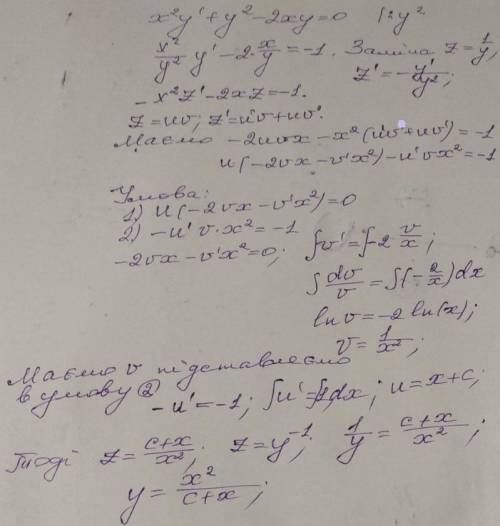 x²y' + y² - 2xy = 0   |: y²
x²/y² y' - 2·x/y = -1. Заміна z = 1/y;
z' = -y'/y²;
- x²z' - 2xz = -1.
z = uv; z' = u'v + uv'.
Маємо -2uvx - x²(u'v + uv') = -1
u(-2vx - v'x²) - u'vx² = -1
Умова:
1) u(-2vx - v'x²) = 0
2) -u'v·x² = -1
-2vx - v'x² = 0; ∫v' = ∫-2 v/x;
∫dv/v = ∫(-2/x)dx
ln v = -2 ln(x);
v = 1/x²;
Маємо v підставляємо
в умову ②
-u' = -1; ∫u' = ∫1dx; u = x + c;
Тоді z = c+x/x²; z = y⁻¹; 1/y = c+x/x²;
y = x²/c+x;